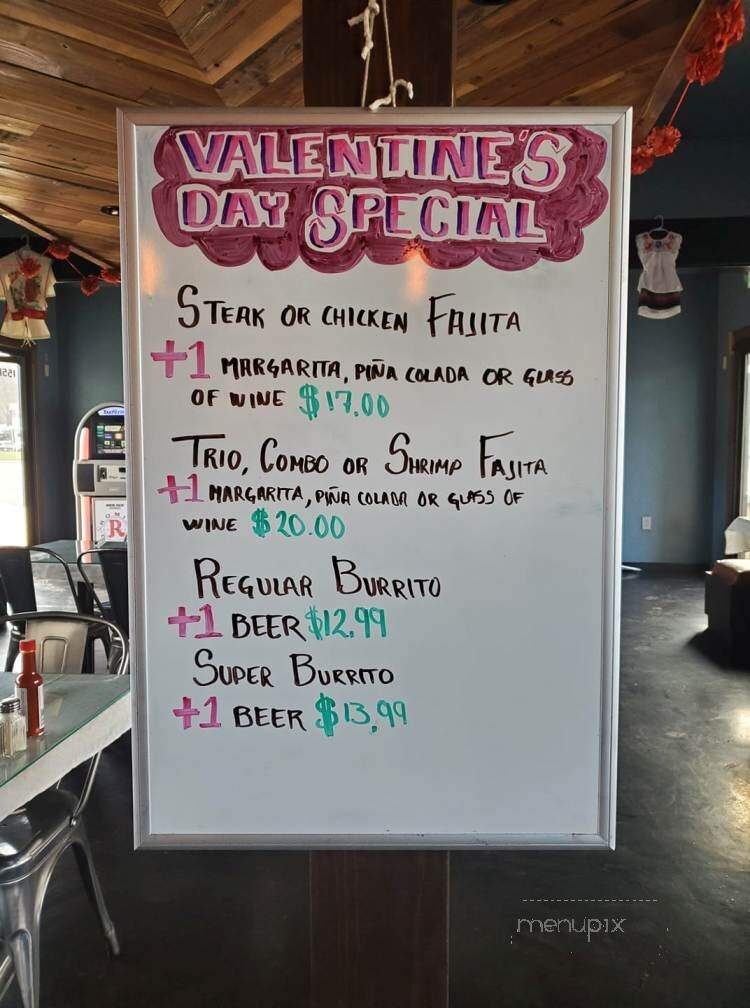 VALENTINE'S
DAY SPECIAL
STEAK OR CHICKEN FAJITA
+1 MARGARITA, PIÑA COLADA OR GLASS
OF WINE $17.00
TRIO, COMBO OR SHRIMP FAJITA
+1 MARGARITA, PIÑA COLADA OR GLASS OF
WINE $20.00
REGULAR BURRITO
+1 BEER $12.99
SUPER BURRITO
+1 BEER $13,99
R
menupix